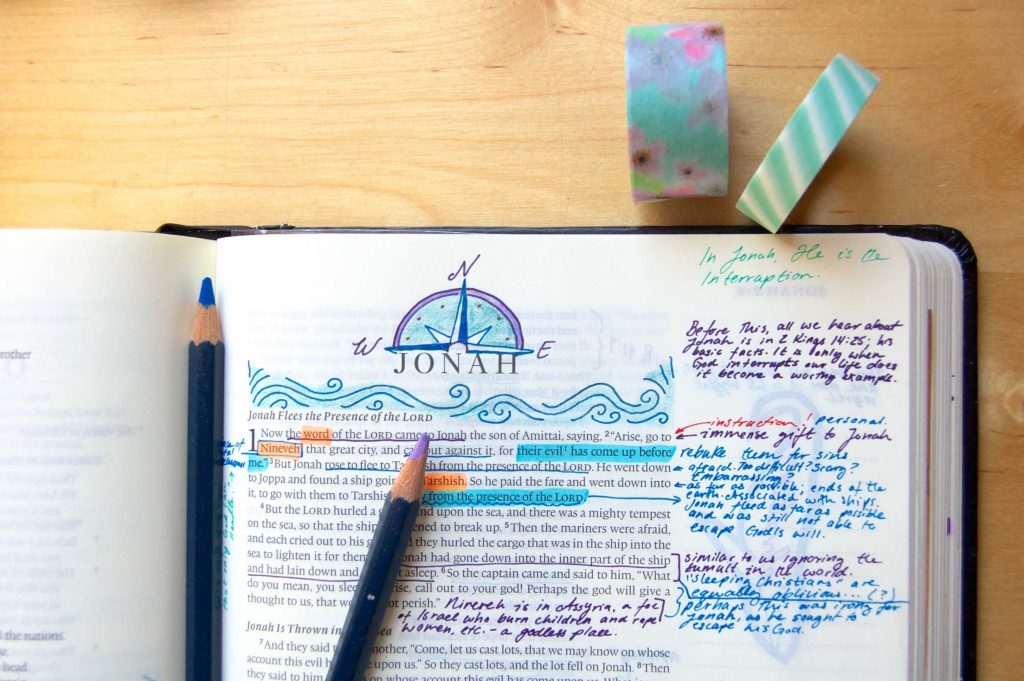 rother
d the nations.
head.
In Jonah, He is the
Interruption.
N
W JONAH E
Before This, all we hear about
Jonah is in 2 Kings 14:25; his
basic facts. It is only when
God interrupts our life does
it become a worthy example.
Jonah Flees the Presence of the LORD
1 Now the word of the LORD came to Jonah the son of Amittai, saying, 2 "Arise, go to
Nineveh, that great city, and out against it, for their evil has come up before
me." 3 But Jonah rose to flee to Ta from the presence of the LORD. He went down
to Joppa and found a ship goin Tarshish. So he paid the fare and went down into
it, to go with them to Tarshis from the presence of the LORD.
4 But the LORD hurled a g d upon the sea, and there was a mighty tempest
on the sea, so that the ship ened to break up. 5 Then the mariners were afraid,
and each cried out to his g d they hurled the cargo that was in the ship into the
sea to lighten it for them onah had gone down into the inner part of the ship
and had lain down and t asleep. 6 So the captain came and said to him, "What
do you mean, you slee rise, call out to your god! Perhaps the god will give a
thought to us, that we ot perish."
instruction! personal.
immense gift to Jonah
rebuke them for sins
afraid. Too difficult? Scary?
Embarrassing?
as far as possible; ends of the
earth. Associated with ships.
Jonah fleed as far as possible
and was still not able to
escape God's will.
similar to us ignoring the
tumult in the world.
"sleeping Christians" are
equally oblivious... (?)
perhaps this was irony for
Jonah, as he sought to
escape his God.
Nineveh is in Assyria, a foe
of Israel who burn children and rape
women, etc. - a godless place.
Jonah Is Thrown in ea
7 And they said other, "Come, let us cast lots, that we may know on whose
account this evil upon us." So they cast lots, and the lot fell on Jonah. 8 Then
they said to him on whose account this evil has come upon us. What is